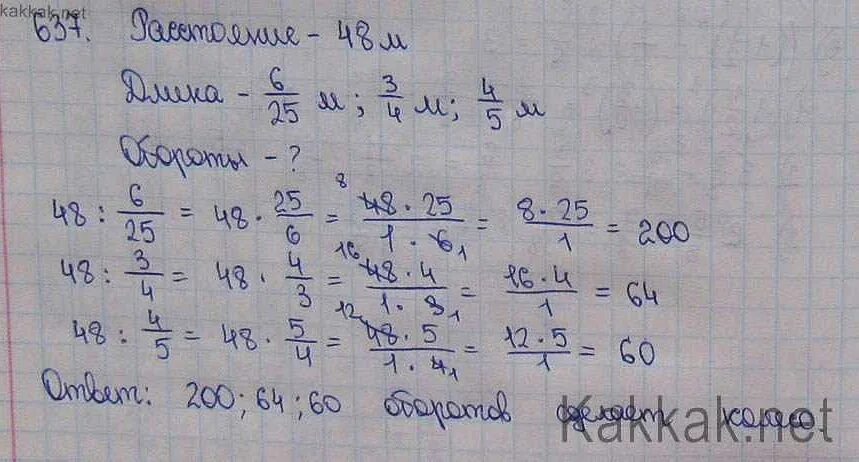 kakkak.net
637. Расстояние - 48 м
Длина - 6/25 м; 3/4 м; 4/5 м
Обороты - ?
48 : 6/25 = 48 · 25/6 = 8 48 · 25 / 1 · 6 1 = 8 · 25 / 1 = 200
48 : 3/4 = 48 · 4/3 = 16 48 · 4 / 1 · 3 1 = 16 · 4 / 1 = 64
48 : 4/5 = 48 · 5/4 = 12 48 · 5 / 1 · 4 1 = 12 · 5 / 1 = 60
Ответ: 200; 64; 60 оборотов сделает колесо.
Kakkak.net